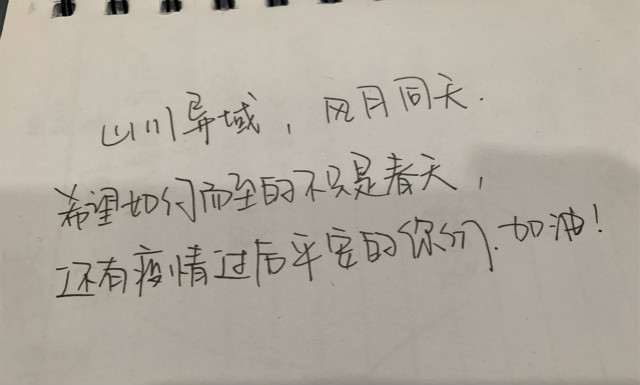 山川异域，风月同天.
希望如何而至的不只是春天，
还有疫情过后平安的你们.加油!